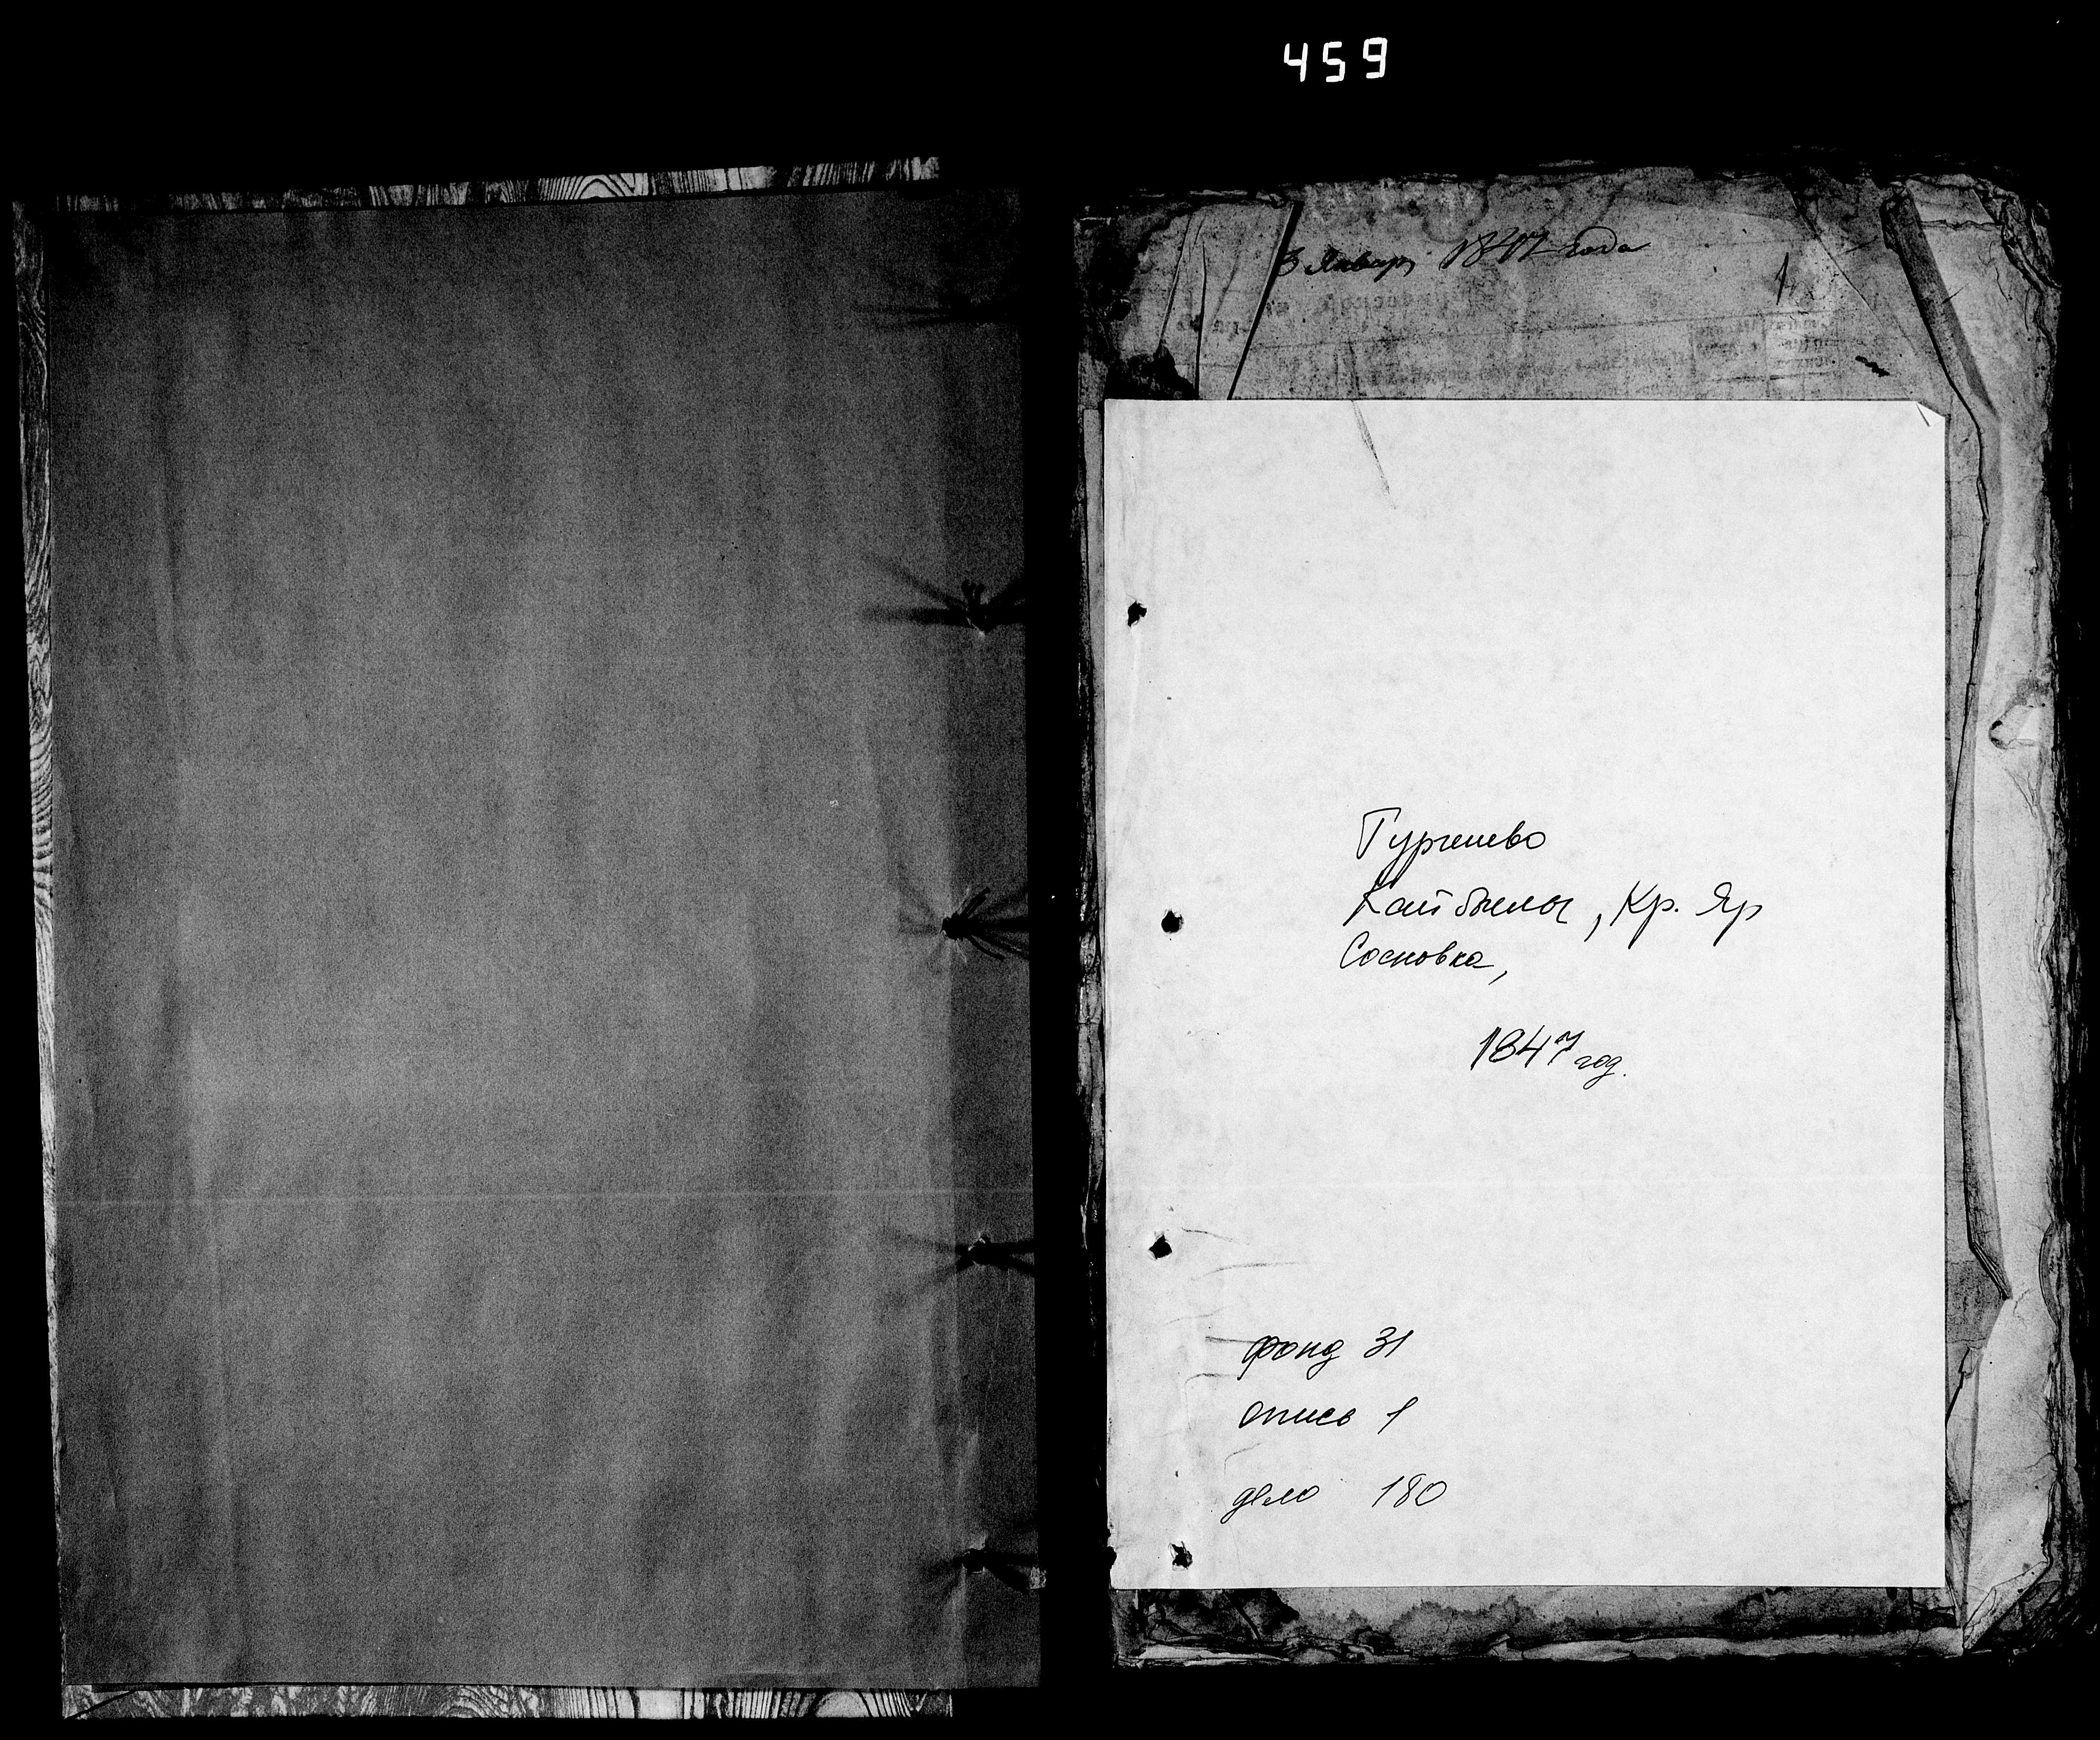 459
Январь 1847 года
1
Тургенево
Кайбелы, Кр. Яр
Сосновка,
1847 год.
фонд 31
опись 1
дело 180